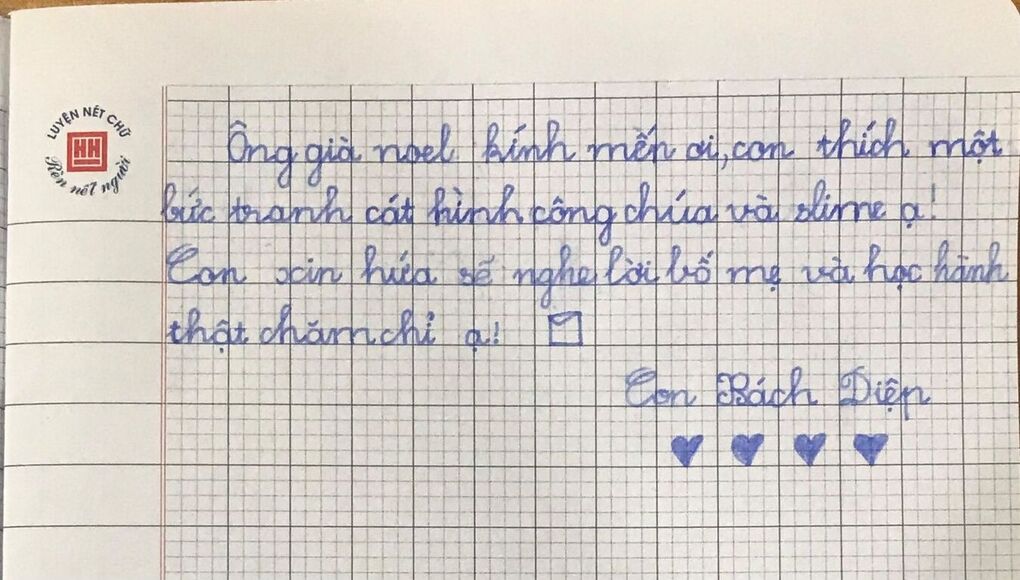 LUYỆN NÉT CHỮ
HH
Rèn nết người
Ông già noel kính mến ơi, con thích một
bức tranh cát hình công chúa và slime ạ!
Con xin hứa sẽ nghe lời bố mẹ và học hành
thật chăm chỉ ạ!
Con Bách Diệp